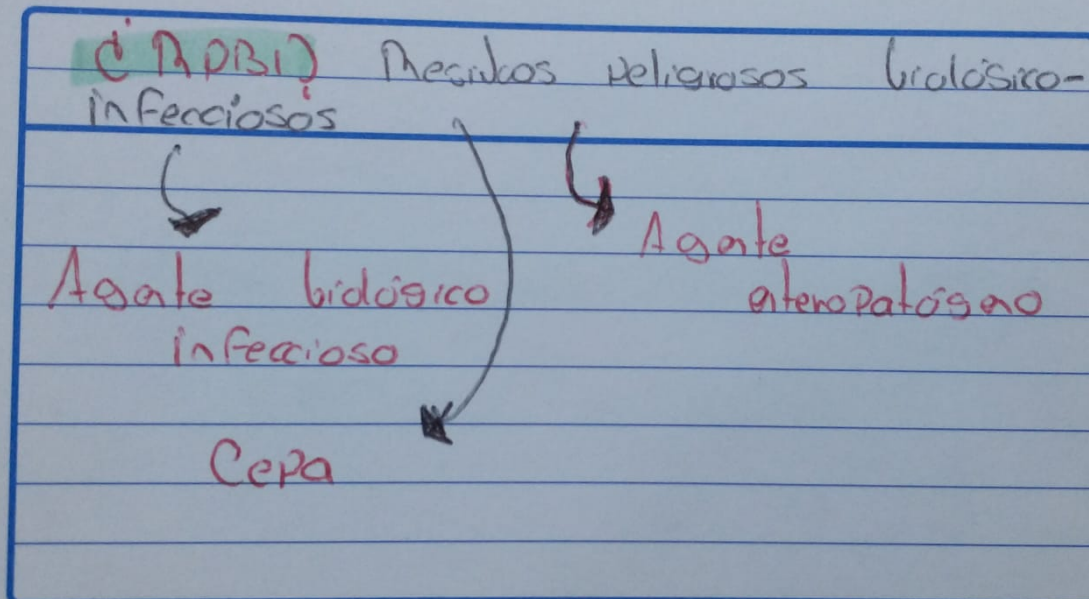 ¿RPBI? Residuos peligrosos biológico-
infecciosos
Agente biológico
infeccioso
Agente
enteropatógeno
Cepa